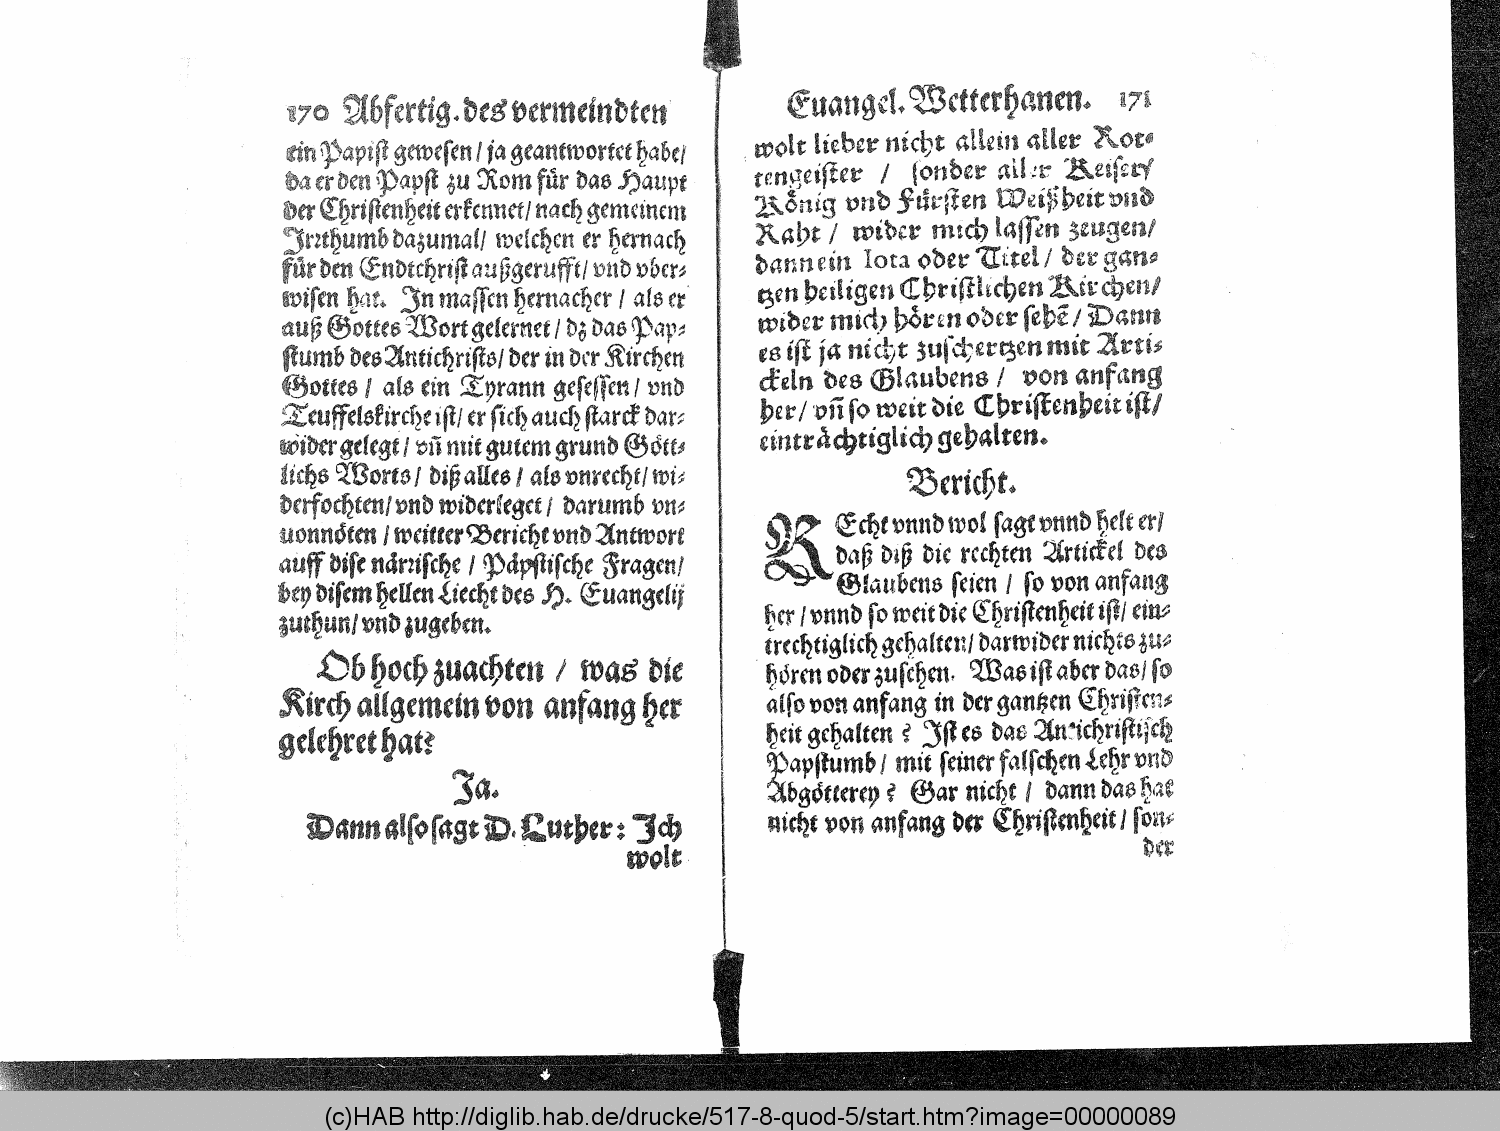 170 Abfertig. des vermeindten
ein Papist gewesen / ja geantwortet habe/
da er den Papst zu Rom für das Haupt
der Christenheit erkennet/ nach gemeinem
Irrthumb dazumal/ welchen er hernach
für den Endtchrist außgerufft/ vnd vber⸗
wisen hat. In massen hernacher / als er
auß Gottes Wort gelernet / dz das Pap⸗
stumb des Antichrists/ der in der Kirchen
Gottes / als ein Tyrann gesessen / vnd
Teuffelskirche ist/ er sich auch starck dar⸗
wider gelegt / vñ mit gutem grund Gött⸗
lichs Worts / diß alles / als vnrecht/ wi⸗
derfochten/ vnd widerleget / darumb vn⸗
uonnöten / weitter Bericht vnd Antwort
auff dise närrische / Päpstische Fragen/
bey disem hellen Liecht des H. Euangelij
zuthun/ vnd zugeben.
Ob hoch zuachten / was die
Kirch allgemein von anfang her
gelehret hat?
Ja.
Dann also sagt D. Luther: Ich
wolt
Euangel. Wetterhanen. 171
wolt lieber nicht allein aller Rot⸗
tengeister / sonder aller Keiser/
König vnd Fürsten Weißheit vnd
Raht / wider mich lassen zeugen/
dann ein Iota oder Titel / der gan⸗
tzen heiligen Christlichen Kirchen/
wider mich hören oder sehẽ / Dann
es ist ja nicht zuschertzen mit Arti⸗
ckeln des Glaubens / von anfang
her/ vñ so weit die Christenheit ist/
einträchtiglich gehalten.
Bericht.
REcht vnnd wol sagt vnnd helt er/
daß diß die rechten Artickel des
Glaubens seien / so von anfang
her / vnnd so weit die Christenheit ist/ ein⸗
trechtiglich gehalten/ darwider nichts zu⸗
hören oder zusehen. Was ist aber das/ so
also von anfang in der gantzen Christen⸗
heit gehalten ? Ist es das Antichristisch
Papstumb / mit seiner falschen Lehr vnd
Abgötterey ? Gar nicht / dann das hat
nicht von anfang der Christenheit / son⸗
der
(c)HAB http://diglib.hab.de/drucke/517-8-quod-5/start.htm?image=00000089